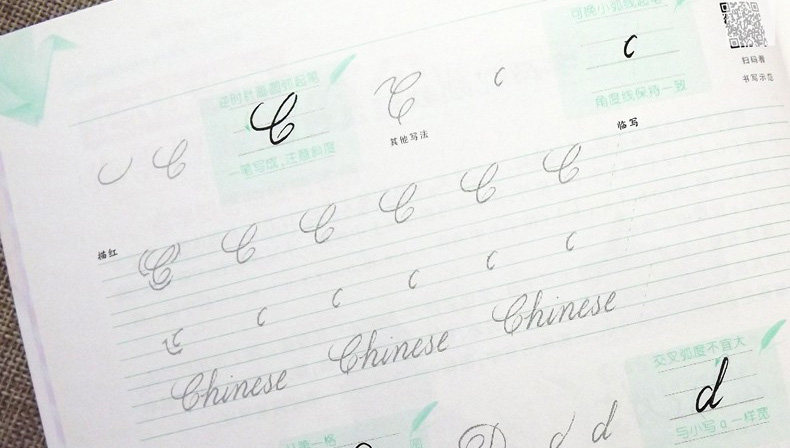 可换小弧线起笔
C
扫码看
书写示范
角度线保持一致
逆时针画圆弧起笔
C
一笔写成,注意斜度
C c
其他写法
临写
C
描红
C C C C C C
c c c c c c
Chinese Chinese Chinese
交叉弧度不宜大
d
与小写a一样宽
d d